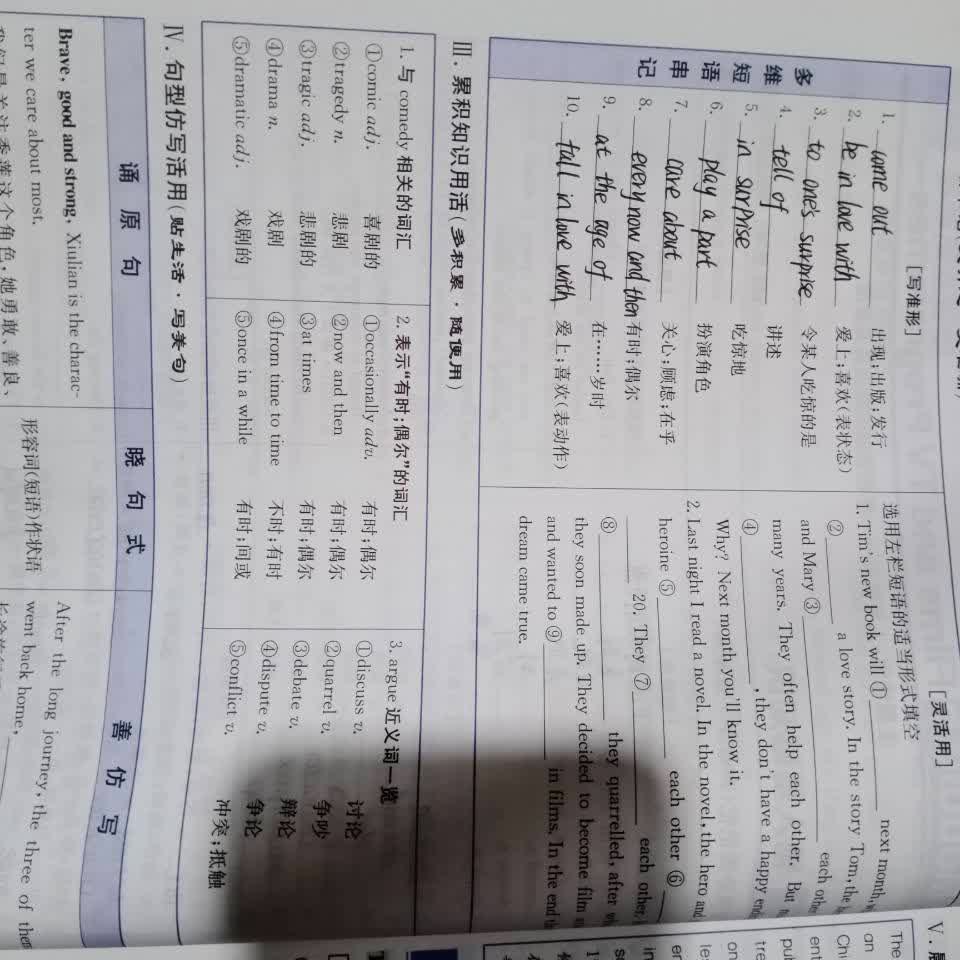 多维短语串记
[写准形]
1. come out 出现;出版;发行
2. be in love with 爱上;喜欢(表状态)
3. to one's surprise 令某人吃惊的是
4. tell of 讲述
5. in surprise 吃惊地
6. play a part 扮演角色
7. care about 关心;顾虑;在乎
8. every now and then 有时;偶尔
9. at the age of 在……岁时
10. fall in love with 爱上;喜欢(表动作)
[灵活用]
选用左栏短语的适当形式填空
1. Tim's new book will ① next month,
② a love story. In the story Tom, the
and Mary ③ each other
many years. They often help each other. But
④ , they don't have a happy
Why? Next month you'll know it.
2. Last night I read a novel. In the novel, the hero and
heroine ⑤ each other ⑥
20. They ⑦ each other,
⑧ they quarrelled, after
they soon made up. They decided to become film
and wanted to ⑨ in films. In the end
dream came true.
Ⅲ. 累积知识用活(多积累·随便用)
1. 与 comedy 相关的词汇
①comic adj. 喜剧的
②tragedy n. 悲剧
③tragic adj. 悲剧的
④drama n. 戏剧
⑤dramatic adj. 戏剧的
2. 表示“有时;偶尔”的词汇
①occasionally adv. 有时;偶尔
②now and then 有时;偶尔
③at times 有时;偶尔
④from time to time 不时;有时
⑤once in a while 有时;间或
3. argue 近义词一览
①discuss v. 讨论
②quarrel v. 争吵
③debate v. 辩论
④dispute v. 争论
⑤conflict v. 冲突;抵触
Ⅳ. 句型仿写活用(贴生活·写美句)
诵原句
晓句式
善仿写
Brave, good and strong, Xiulian is the charac-
ter we care about most.
我们最关注秀莲这个角色,她勇敢、善良、
形容词(短语)作状语
After the long journey, the three of them
went back home,
Ⅴ.
The
an